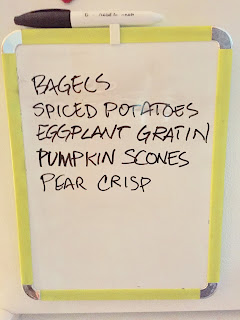 BAGELS
SPICED POTATOES
EGGPLANT GRATIN
PUMPKIN SCONES
PEAR CRISP